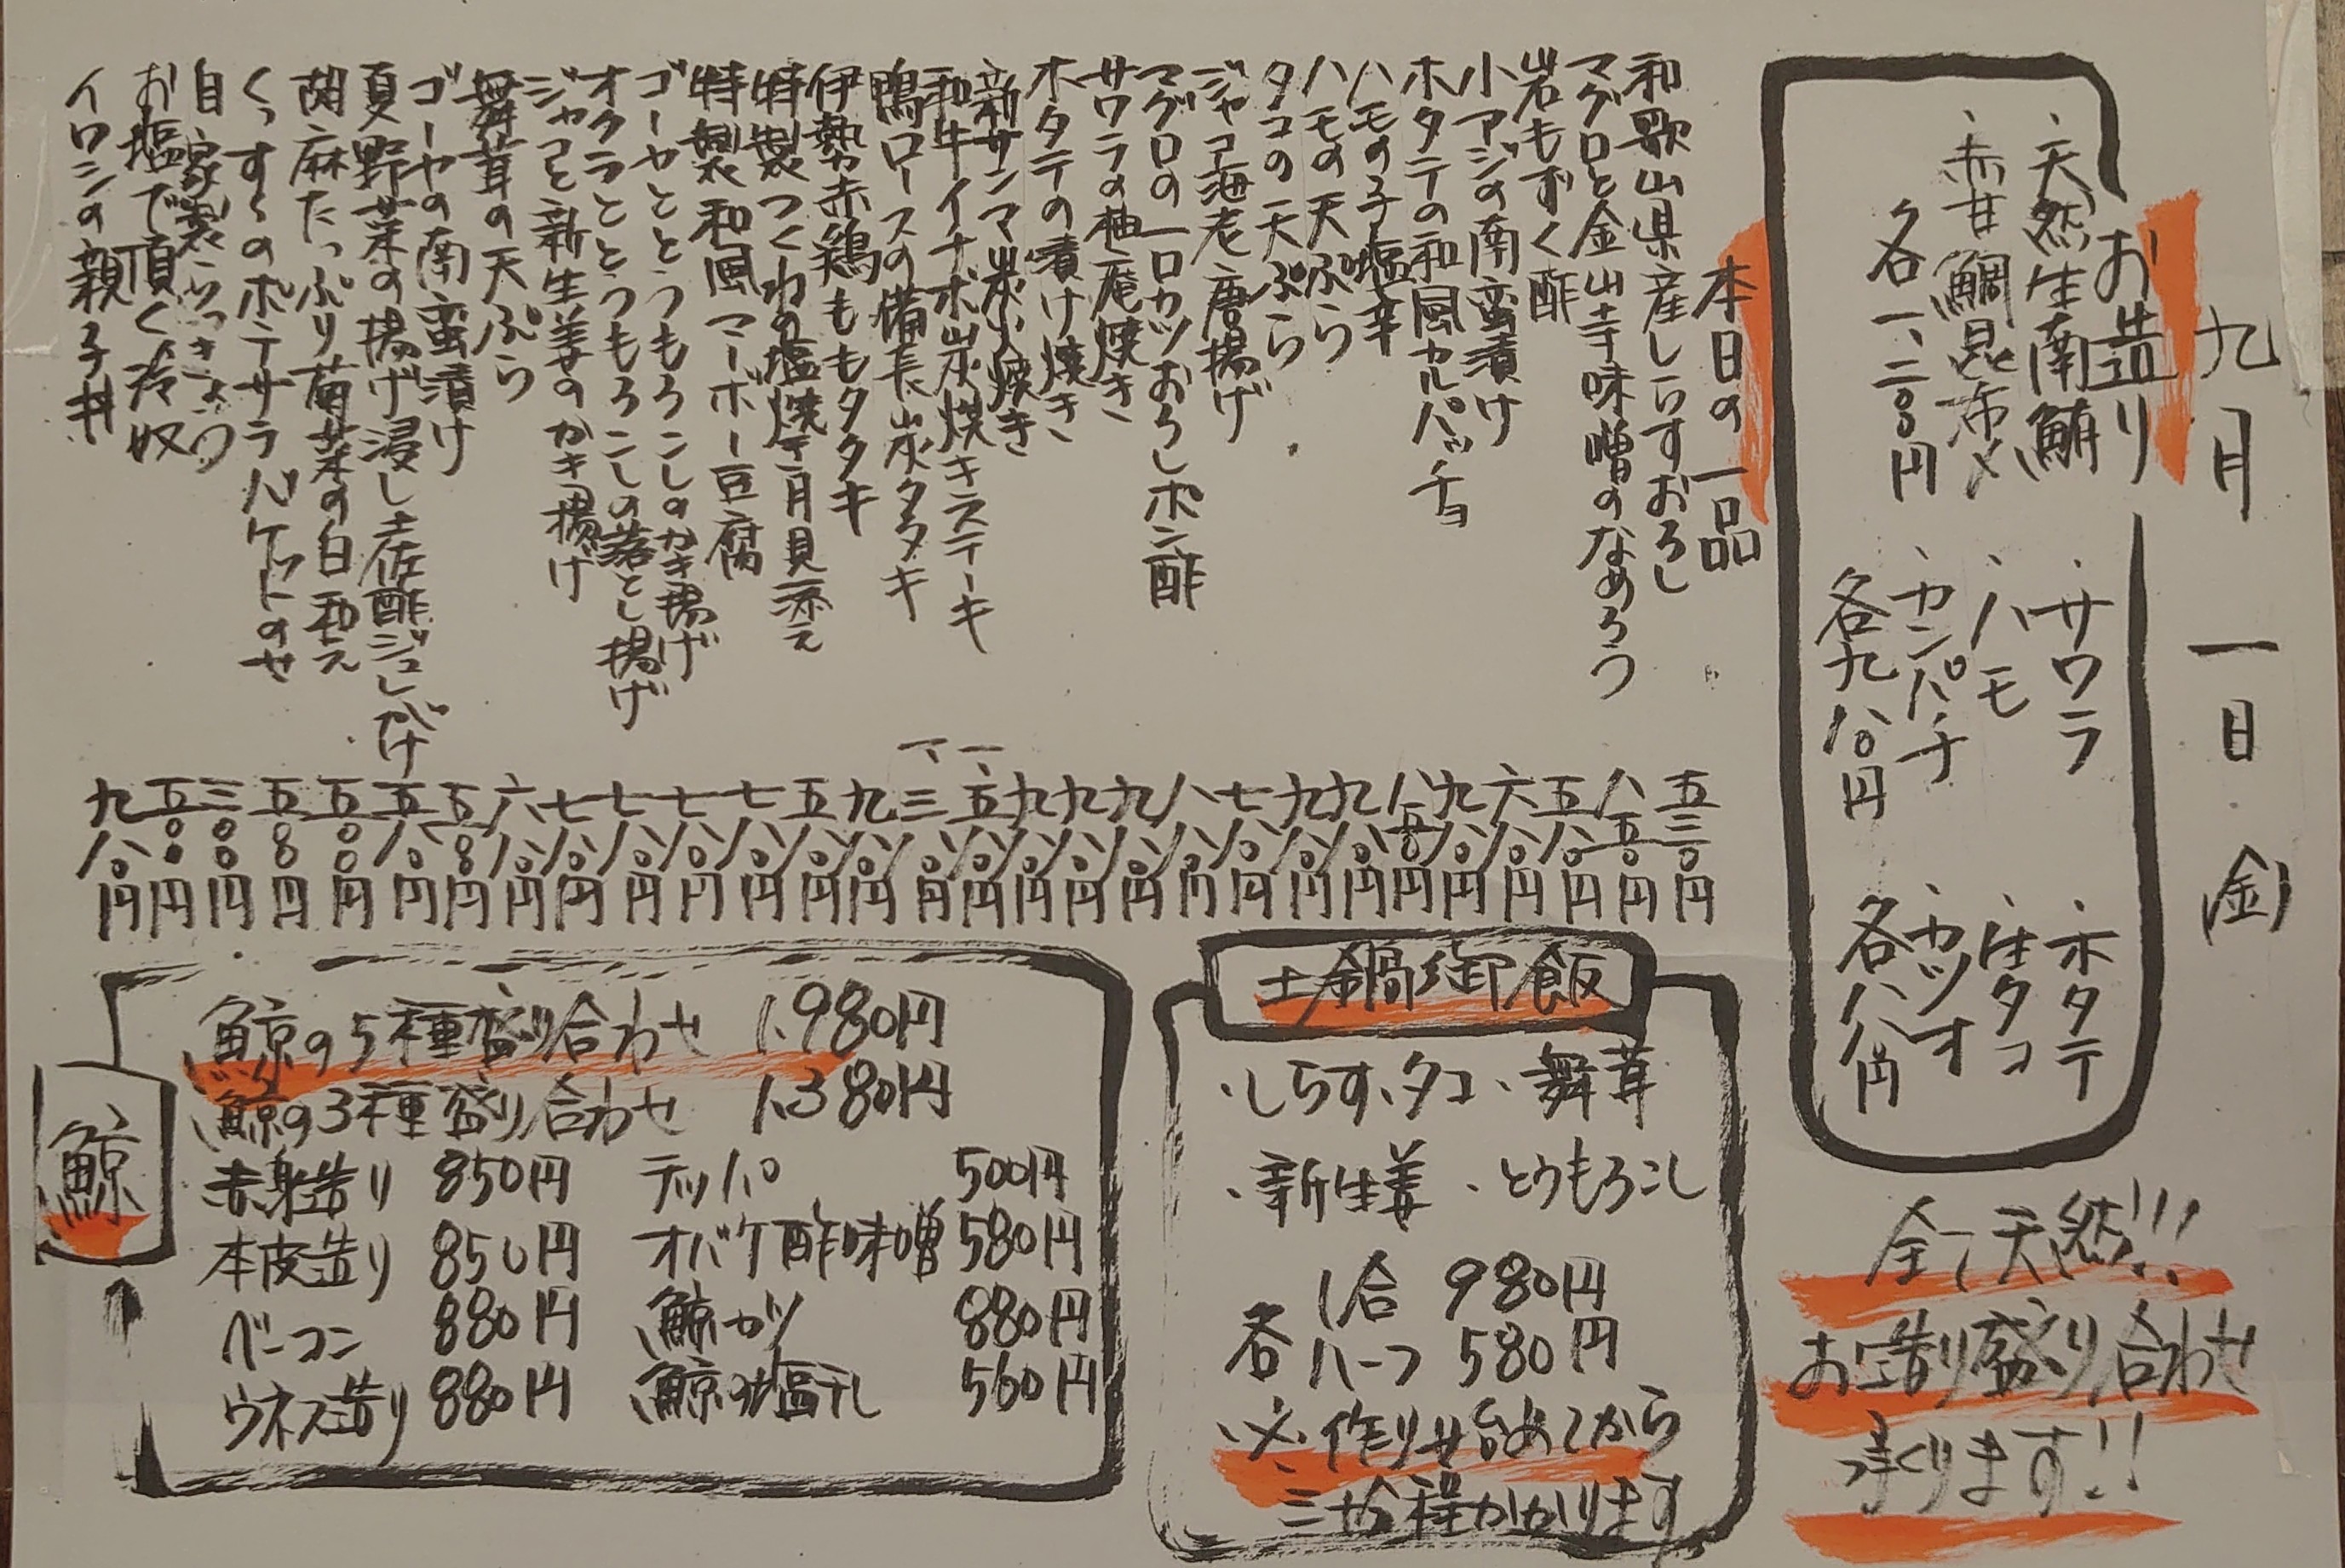 九月 一日 金
お造り
・天然生南鮪
・赤甘鯛昆布〆
各一、二〇〇円
・サワラ
・ハモ
・カンパチ
各九八〇円
・ホタテ
・生タコ
・カツオ
各八八〇円
全て天然!!!
お造り盛り合わせ
承ります!!
本日の一品
和歌山県産しらすおろし 五三〇円
マグロと金山寺味噌のなめろう 八五〇円
岩もずく酢 五八〇円
小アジの南蛮漬け 六八〇円
ホタテの和風カルパッチョ 九八〇円
ハモの子塩辛 八五〇円
ハモの天ぷら 九八〇円
タコの天ぷら 九八〇円
ジャコ海老唐揚げ 七八〇円
マグロの一口カツおろしポン酢 八八〇円
サワラの柚庵焼き 九八〇円
ホタテの漬け焼き 九八〇円
新サンマ炭火焼き 九八〇円
和牛イチボ炭焼きステーキ 一、五八〇円
鴨ロースの備長炭タタキ 一、三八〇円
伊勢赤鶏ももタタキ 九八〇円
特製つくねの塩焼き 月見添え 五八〇円
特製和風マーボー豆腐 七八〇円
ゴーヤととうもろこしのかき揚げ 七八〇円
オクラととうもろこしの落とし揚げ 七八〇円
ジャコと新生姜のかき揚げ 七八〇円
舞茸の天ぷら 六八〇円
ゴーヤの南蛮漬け 五〇〇円
夏野菜の揚げ浸し土佐酢ジュレがけ 五八〇円
胡麻たっぷり菊菜の白和え 五〇〇円
くっすくのポテサラバケットのせ 五〇〇円
自家製らっきょう 三〇〇円
お塩で頂く冷奴 五〇〇円
イワシの親子丼 九八〇円
土鍋御飯
・しらす・タコ・舞茸
・新生姜・とうもろこし
各 1合 980円
ハーフ 580円
※作り始めてから
三十分程かかります
鯨
鯨の5種盛り合わせ 1,980円
鯨の3種盛り合わせ 1,380円
赤身造り 850円 テッパ 500円
本皮造り 850円 オバケ酢味噌 580円
ベーコン 880円 鯨カツ 880円
ウネス造り 880円 鯨の塩干し 560円